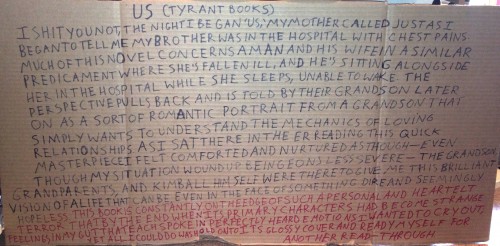 US (TYRANT BOOKS)
I SHIT YOU NOT, THE NIGHT I BEGAN "US," MY MOTHER CALLED JUST AS I
BEGAN TO TELL ME MY BROTHER WAS IN THE HOSPITAL WITH CHEST PAINS
MUCH OF THIS NOVEL CONCERNS A MAN AND HIS WIFE IN A SIMILAR
PREDICAMENT WHERE SHE'S FALLEN ILL, AND HE'S SITTING ALONGSIDE
HER IN THE HOSPITAL WHILE SHE SLEEPS, UNABLE TO WAKE THE
PERSPECTIVE PULLS BACK AND IS TOLD BY THEIR GRANDSON LATER
ON AS A SORT OF ROMANTIC PORTRAIT FROM A GRANDSON THAT
SIMPLY WANTS TO UNDERSTAND THE MECHANICS OF LOVING
RELATIONSHIPS AS I SAT THERE IN THE ER READING THIS QUICK
MASTERPIECE I FELT COMFORTED AND NURTURED AS THOUGH—EVEN
THOUGH MY SITUATION WOUND UP BEING EONS LESS SEVERE—THE GRANDSON,
GRANDPARENTS, AND KIMBALL HIMSELF WERE THERE TO GIVE ME THIS BRILLIANT
VISION OF A LIFE THAT CAN BE EVEN IN THE FACE OF SOMETHING DIRE AND SEEMINGLY
HOPELESS. THIS BOOK IS CONSTANTLY ON THE EDGE OF SUCH A PERSONAL AND HEARTFELT
TERROR THAT BY THE END WHEN ITS PRIMARY CHARACTERS HAD BECOME STRANGE
FEELINGS IN MY GUT THAT EACH SPOKE IN PERFECTLY HEARD EMOTIONS I WANTED TO CRY OUT,
BUT ALL I COULD DO WAS HOLD ONTO ITS GLOSSY COVER AND READY MYSELF FOR
ANOTHER READ-THROUGH